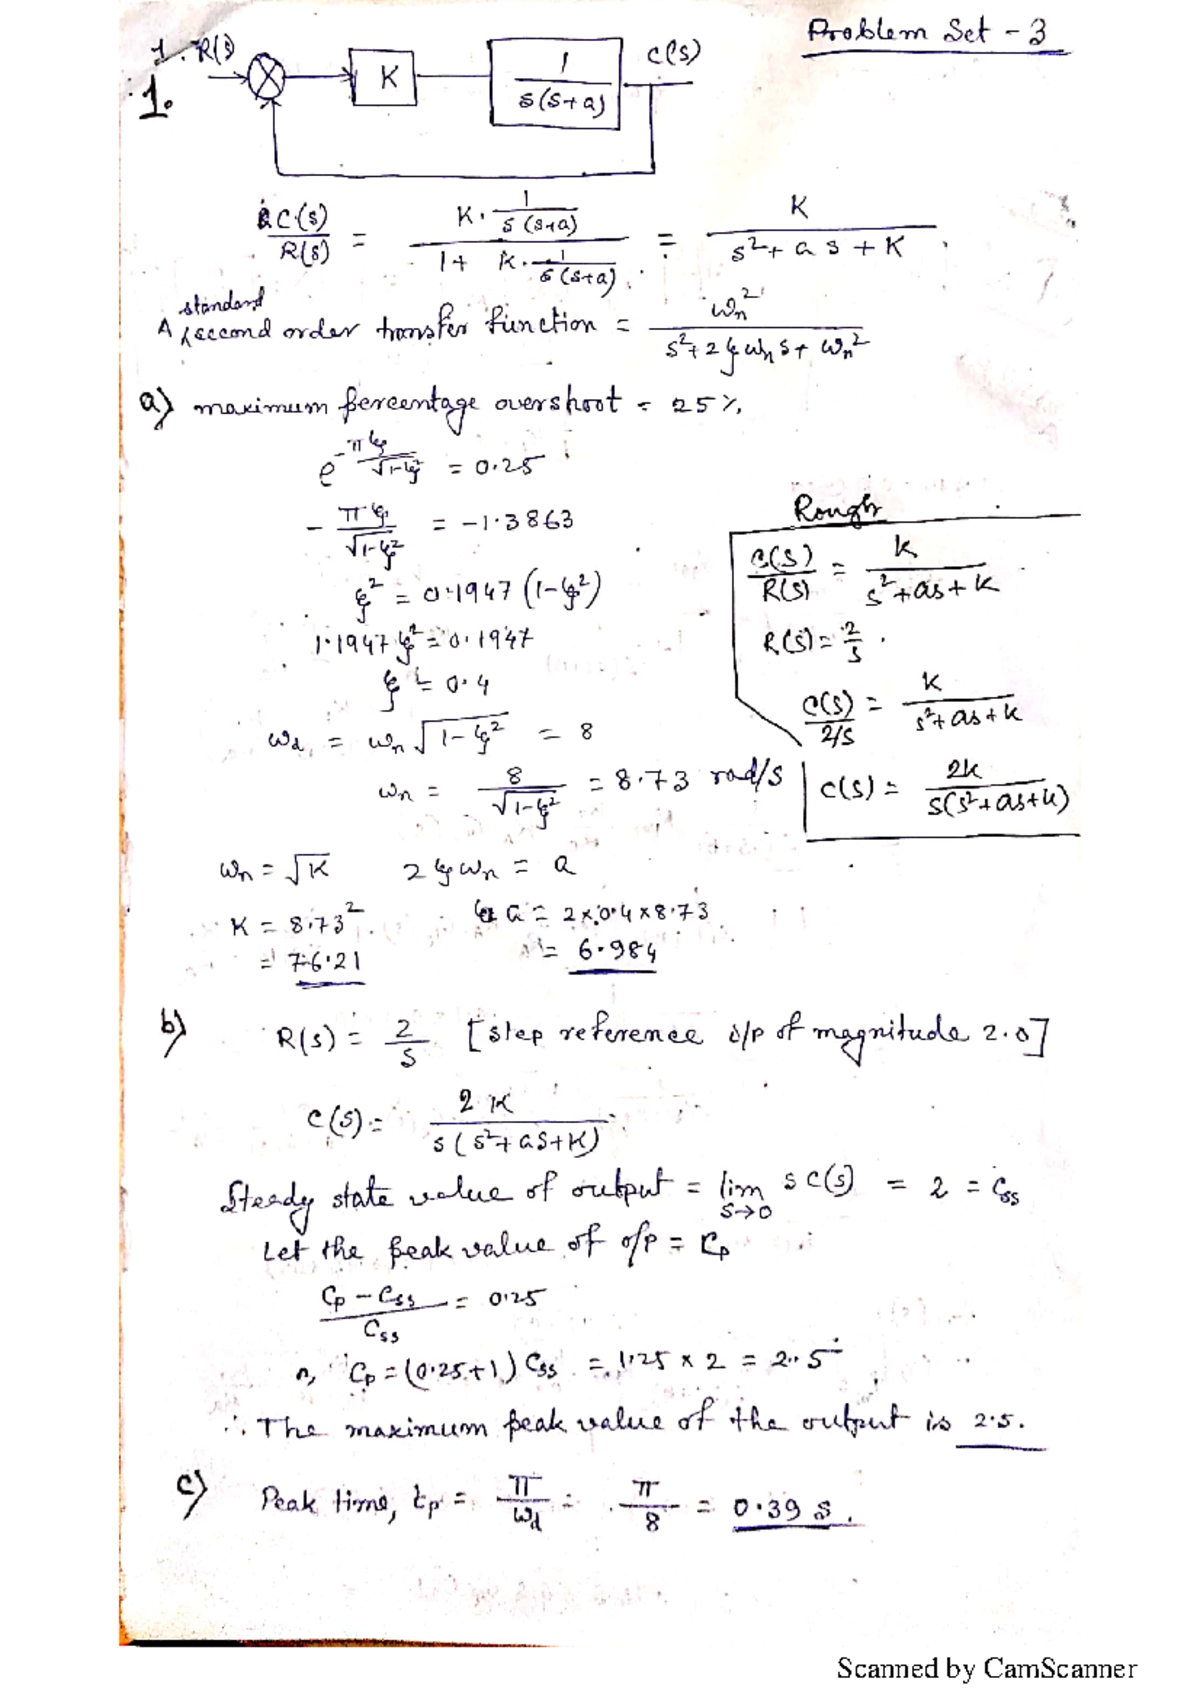 Problem Set - 3
1. R(s)
1.
K
1 / s(s+a)
C(s)
C(s)/R(s) = (K · 1/s(s+a)) / (1 + K · 1/s(s+a)) = K / (s² + as + K)
standard
A second order transfer function = ωn² / (s² + 2ξωn s + ωn²)
a) maximum percentage overshoot = 25%.
e^(-πξ/√(1-ξ²)) = 0.25
- πξ/√(1-ξ²) = -1.3863
ξ² = 0.1947 (1-ξ²)
1.1947 ξ² = 0.1947
ξ = 0.4
ωd = ωn √(1-ξ²) = 8
ωn = 8/√(1-ξ²) = 8.73 rad/s
Rough
C(s)/R(s) = K / (s² + as + K)
R(s) = 2/s .
C(s) / 2/s = K / (s² + as + K)
C(s) = 2K / s(s² + as + K)
ωn = √K 2ξωn = a
K = 8.73² . a = 2×0.4×8.73
= 76.21 = 6.984
b) R(s) = 2/s [step reference i/p of magnitude 2.0]
C(s) = 2K / s(s² + as + K)
Steady state value of output = lim s→0 s C(s) = 2 = Css
Let the peak value of o/p = Cp
(Cp - Css) / Css = 0.25
Cp = (0.25+1) Css = 1.25 × 2 = 2.5
∴ The maximum peak value of the output is 2.5.
c) Peak time, tp = π/ωd = π/8 = 0.39 s.
Scanned by CamScanner